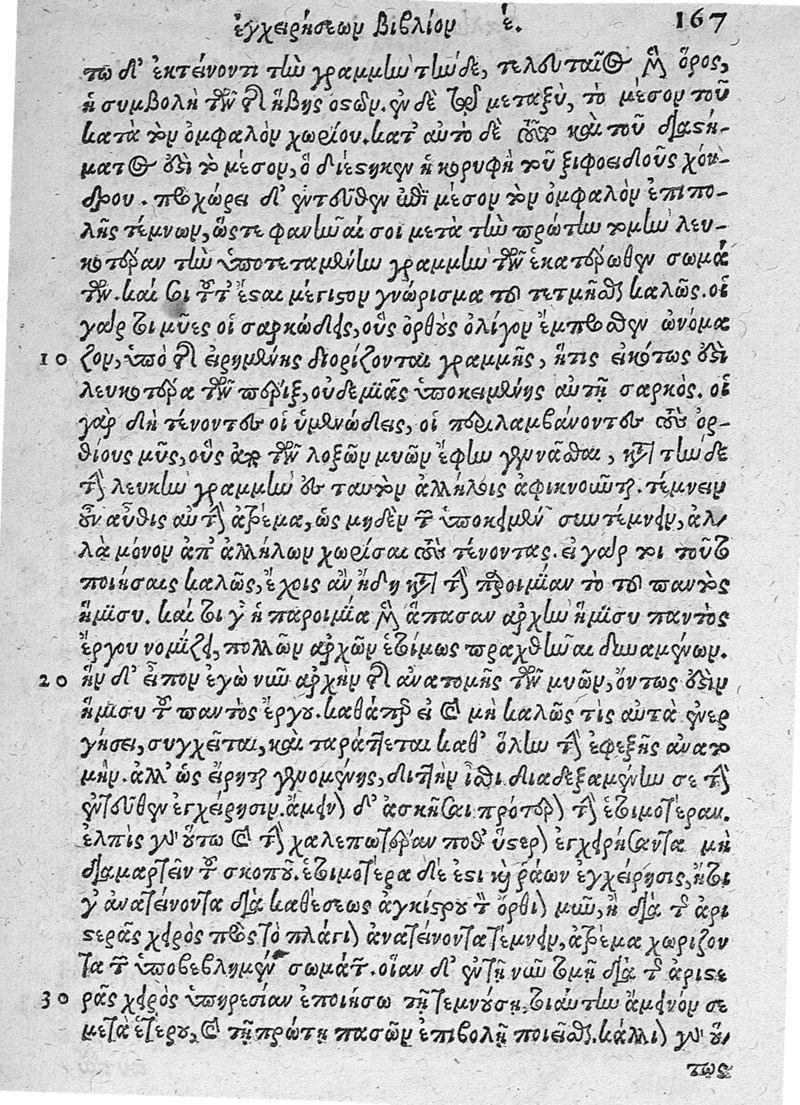 ἐγχειρήσεων βιβλίον έ. 167
τω δ᾽ ἐκτείνοντι τὴν γραμμὴν τήνδε, τελευταῖος ἐστὶν ὅρος,
ἡ συμβολὴ τῶν τῆς ἥβης ὀστῶν. ἐν δὲ τῷ μεταξὺ, τὸ μέσον τοῦ
κατὰ τὸν ὀμφαλὸν χωρίου. κατ᾽ αὐτὸ δὲ καὶ τοῦ διαστή-
ματος ἐστὶ τὸ μέσον, ὃ διέστηκεν ἡ κορυφὴ τοῦ ξιφοειδοῦς χόν-
δρου. προχώρει δ᾽ ἐντεῦθεν ἐπὶ μέσον τὸν ὀμφαλὸν ἐπιπο-
λῆς τέμνων, ὥστε φανῆναί σοι μετὰ τὴν πρώτην τομὴν λευ-
κοτέραν τὴν ὑποτεταμένην γραμμὴν τῶν ἑκατέρωθεν σωμά
των. καί σοι τοῦτ᾽ ἔσται μέγιστον γνώρισμα τοῦ τετμῆσθαι καλῶς. οἱ
γάρ τοι μῦες οἱ σαρκώδεις, οὓς ὀρθοὺς ὀλίγον ἔμπροσθεν ὠνόμα
10 ζον, ὑπὸ τῆς εἰρημένης διορίζονται γραμμῆς, ἥτις εἰκότως ἐστὶ
λευκοτέρα τῶν πέριξ, οὐδεμιᾶς ὑποκειμένης αὐτῇ σαρκὸς. οἱ
γὰρ δὴ τένοντες οἱ ὑμενώδεις, οἱ περιλαμβάνοντες τοὺς ὀρ-
θίους μῦς, οὓς ἀπὸ τῶν λοξῶν μυῶν ἔφην γεννᾶσθαι, κατὰ τήνδε
τὴν λευκὴν γραμμὴν εἰς ταυτὸν ἀλλήλοις ἀφικνοῦνται. τέμνειν
οὖν αὖθις αὐτὴν ἀτρέμα, ὡς μηδὲν τῶν ὑποκειμένων συντέμνειν, ἀλ-
λὰ μόνον ἀπ᾽ ἀλλήλων χωρίσαι τοὺς τένοντας. εἰ γάρ τοι τοῦτο
ποιήσαις καλῶς, ἔχοις ἂν ἤδη κατὰ τὴν παροιμίαν τὸ τοῦ παντὸς
ἥμισυ. καί τοι γ᾽ ἡ παροιμία ἐστὶν ἅπασαν ἀρχὴν ἥμισυ παντὸς
ἔργου νομίζει, πολλῶν ἀρχῶν ἑτοίμως πραχθῆναι δυναμένων.
20 ἣν δ᾽ εἶπον ἐγὼ νῦν ἀρχὴν τῆς ἀνατομῆς τῶν μυῶν, ὄντως ἐστὶν
ἥμισυ τοῦ παντὸς ἔργου. καθάπερ εἰ καὶ μὴ καλῶς τὶς αὐτὰ ἐνερ
γήσει, συγχεῖται, καὶ ταράττεται καθ᾽ ὅλην τὴν ἐφεξῆς ἀνατο
μὴν. ἀλλ᾽ ὡς εἴρηται γενομένης, διττὴν ἴσθι διαδεξαμένην σε τὴν
ἐντεῦθεν ἐγχείρησιν. ἄμεινον δ᾽ ἀσκῆσαι πρότερον τὴν ἑτοιμοτέραν.
ἐλπὶς γὰρ οὕτω καὶ τὴν χαλεπωτέραν ποθ᾽ ὕστερον ἐγχειρήσαντα μὴ
διαμαρτεῖν τοῦ σκοποῦ. ἑτοιμοτέρα δέ ἐστι καὶ ῥάων ἐγχείρησις, ἤτοι
γ᾽ ἀνατείνοντα διὰ καθέσεως ἀγκίστρου τὸν ὄρθιον μῦν, ἢ διὰ τῆς ἀρι
στερᾶς χειρὸς πρὸς τὸ πλάγιον ἀνατείνοντα τέμνειν, ἀτρέμα χωρίζον
τα τῶν ὑποβεβλημένων σωμάτων. οἵαν δ᾽ ἐν τῇ νῦν τομῇ διὰ τῆς ἀριστε
30 ρᾶς χειρὸς ὑπηρεσίαν ἐποιήσω τῇ τεμνούσῃ, τοιαύτην ἄμεινόν σε
μετὰ ἑτέρου, καὶ τῇ πρώτῃ πασῶν ἐπιβολῇ ποιεῖσθαι. κάλλιον γὰρ οὕ-
τως